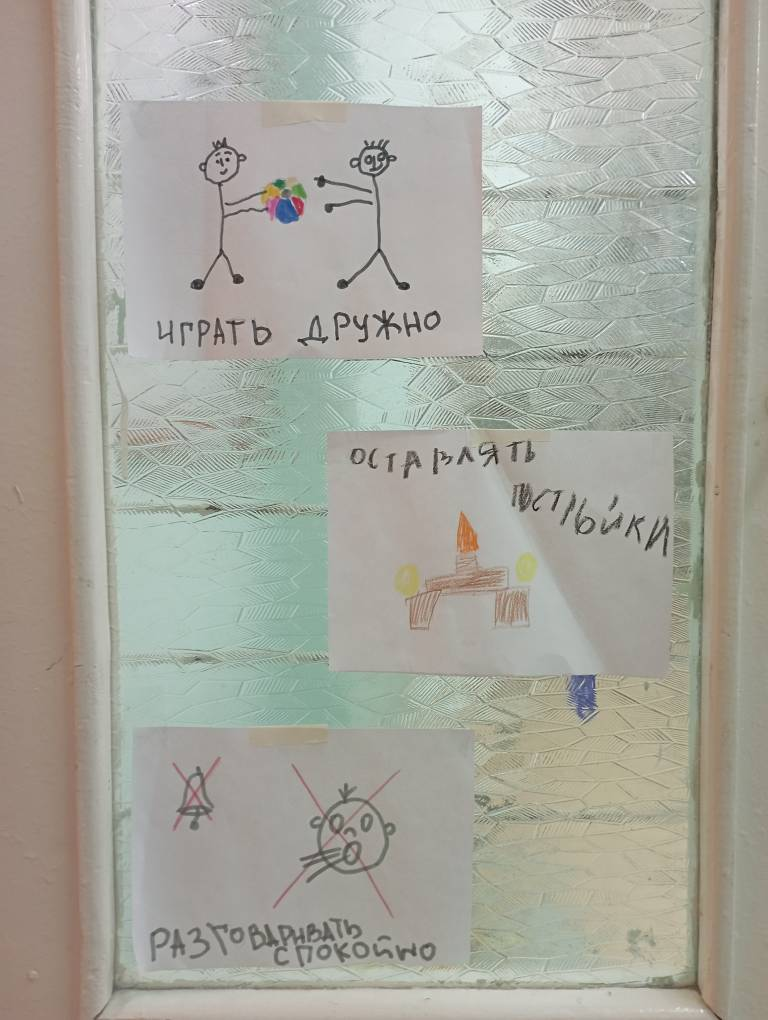 ИГРАТЬ ДРУЖНО
ОСТАВЛЯТЬ
ПОСТРОЙКИ
РАЗГОВАРИВАТЬ
СПОКОЙНО